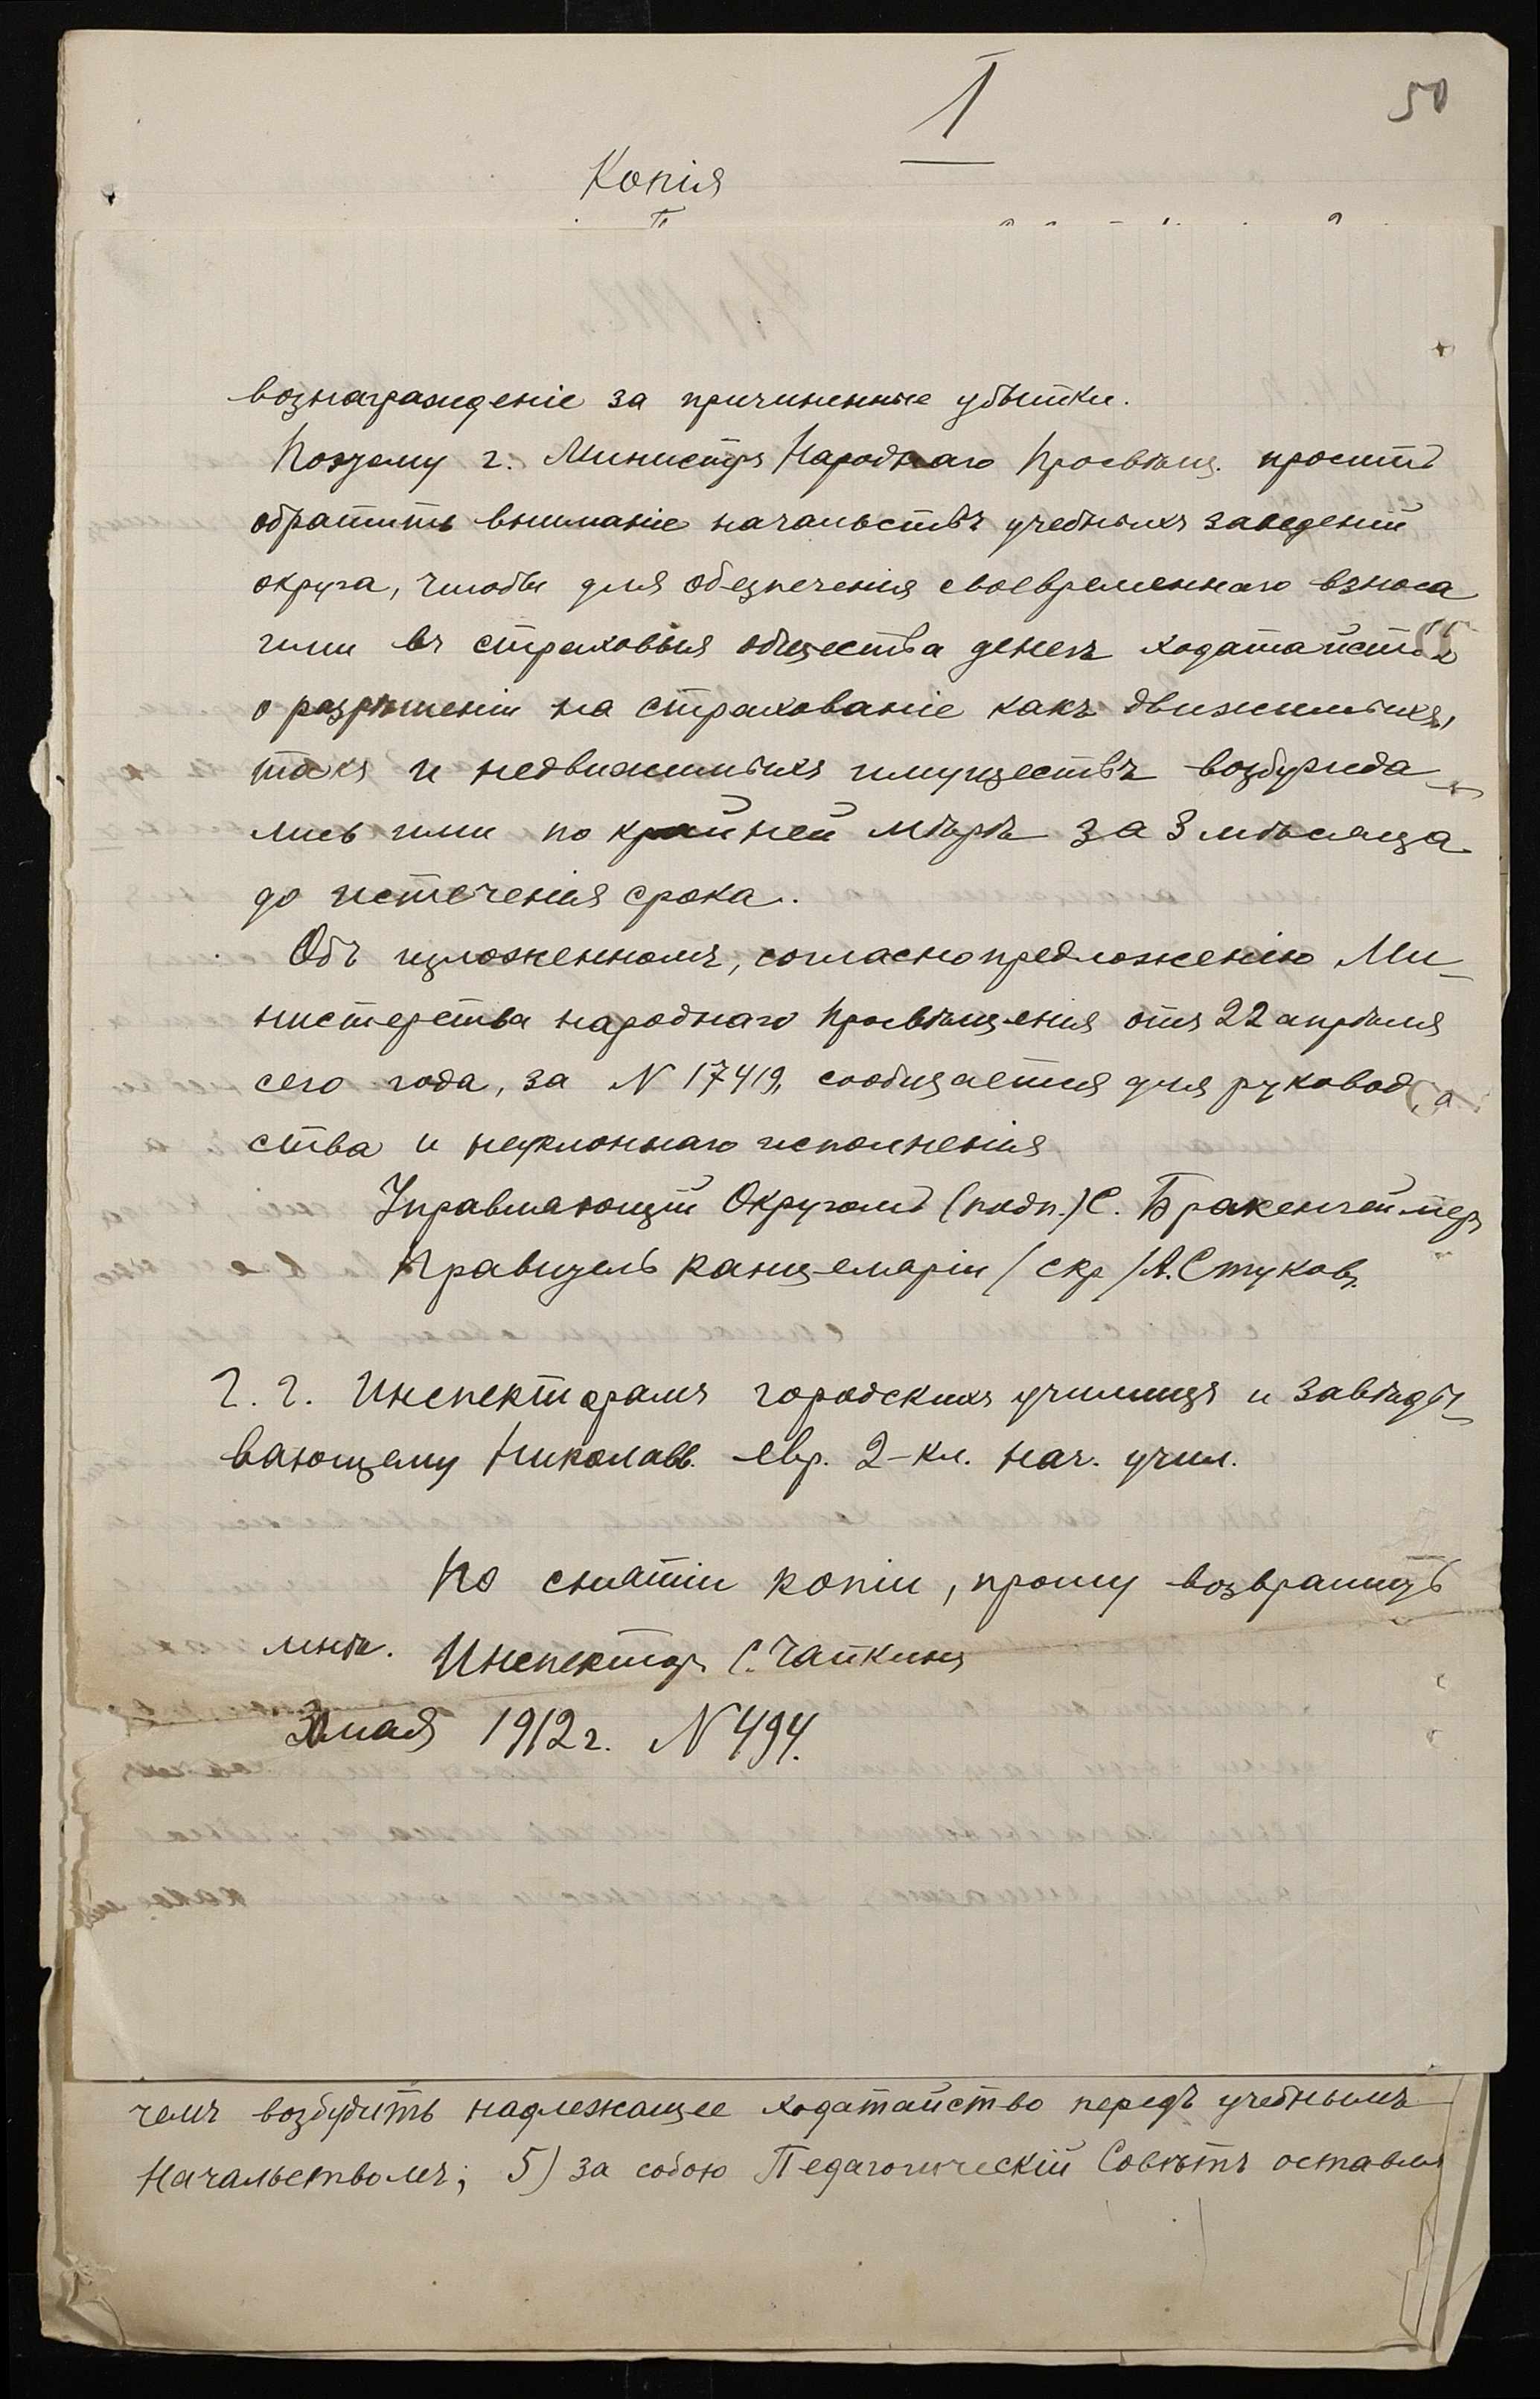 1
50
Копія
вознагражденіе за причиненные убытки.
Поэтому г. Министръ Народнаго Просвѣщ. проситъ
обратить вниманіе начальствъ учебныхъ заведеній
округа, чтобы для обезпеченія своевременнаго взноса
ими въ страховыя общества денегъ ходатайства
о разрѣшеніи на страхованіе какъ движимыхъ,
такъ и недвижимыхъ имуществъ возбужда-
лись ими по крайней мѣрѣ за 3 мѣсяца
до истеченія срока.
Объ изложенномъ, согласно предложенію Ми-
нистерства народнаго Просвѣщенія отъ 22 апрѣля
сего года, за N 17419, сообщается для руковод
ства и неуклоннаго исполненія
Управляющій Округомъ (подп.) С. Бракенгеймеръ
Правитель канцеляріи (скр) А. Стуковъ.
Г. г. Инспекторамъ городскихъ училищъ и завѣды-
вающему Николаев. евр. 2-кл. нач. учил.
По снятіи копіи, прошу возвратить
мнѣ. Инспекторъ С. Чапкинъ
3 мая 1912 г. N 494.
чемъ возбудить надлежащее ходатайство передъ учебнымъ
Начальствомъ; 5) за собою Педагогическій Совѣтъ оставля